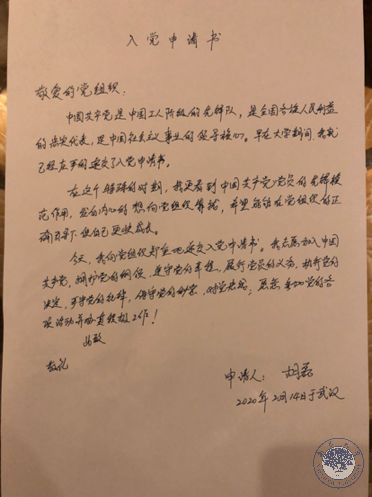 入党申请书
敬爱的党组织:
中国共产党是中国工人阶级的先锋队，是全国各族人民利益
的忠实代表，是中国社会主义事业的领导核心。早在大学期间，我就
已经庄严的递交了入党申请书。
在这个特殊的时刻，我更看到中国共产党党员的先锋模
范作用，发自内心的想向党组织靠拢，希望能够在党组织的正
确引导下使自己更快成长。
今天，我向党组织郑重地递交入党申请书。我志愿加入中国
共产党，拥护党的纲领，遵守党的章程，履行党员的义务，执行党的
决定，严守党的纪律，保守党的秘密，对党忠诚，愿意参加党的各
项活动并积极工作！
此致
敬礼
申请人：胡磊
2020年2月14日于武汉